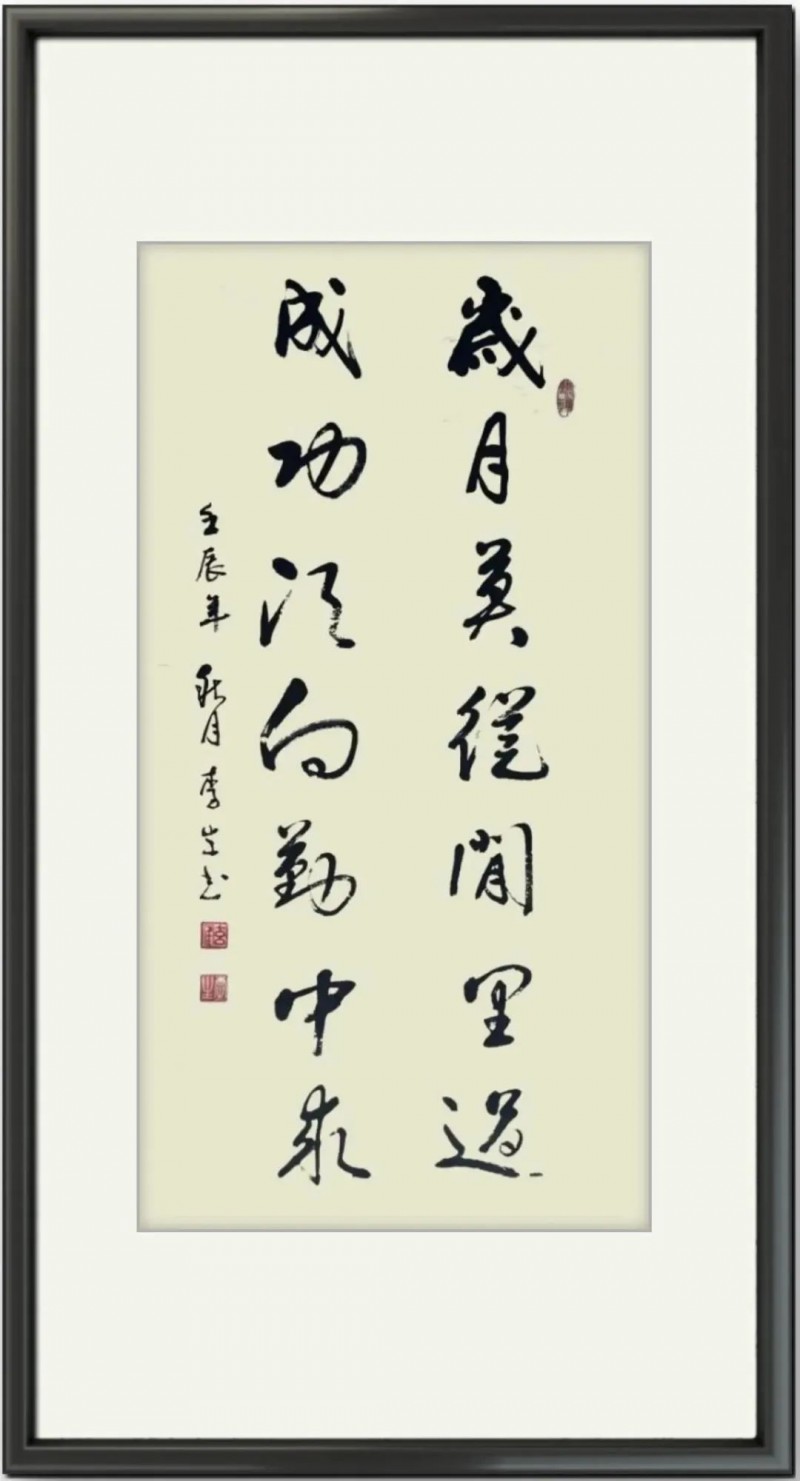 歲月莫從閒里過
成功須向勤中求
壬辰年秋月李生书